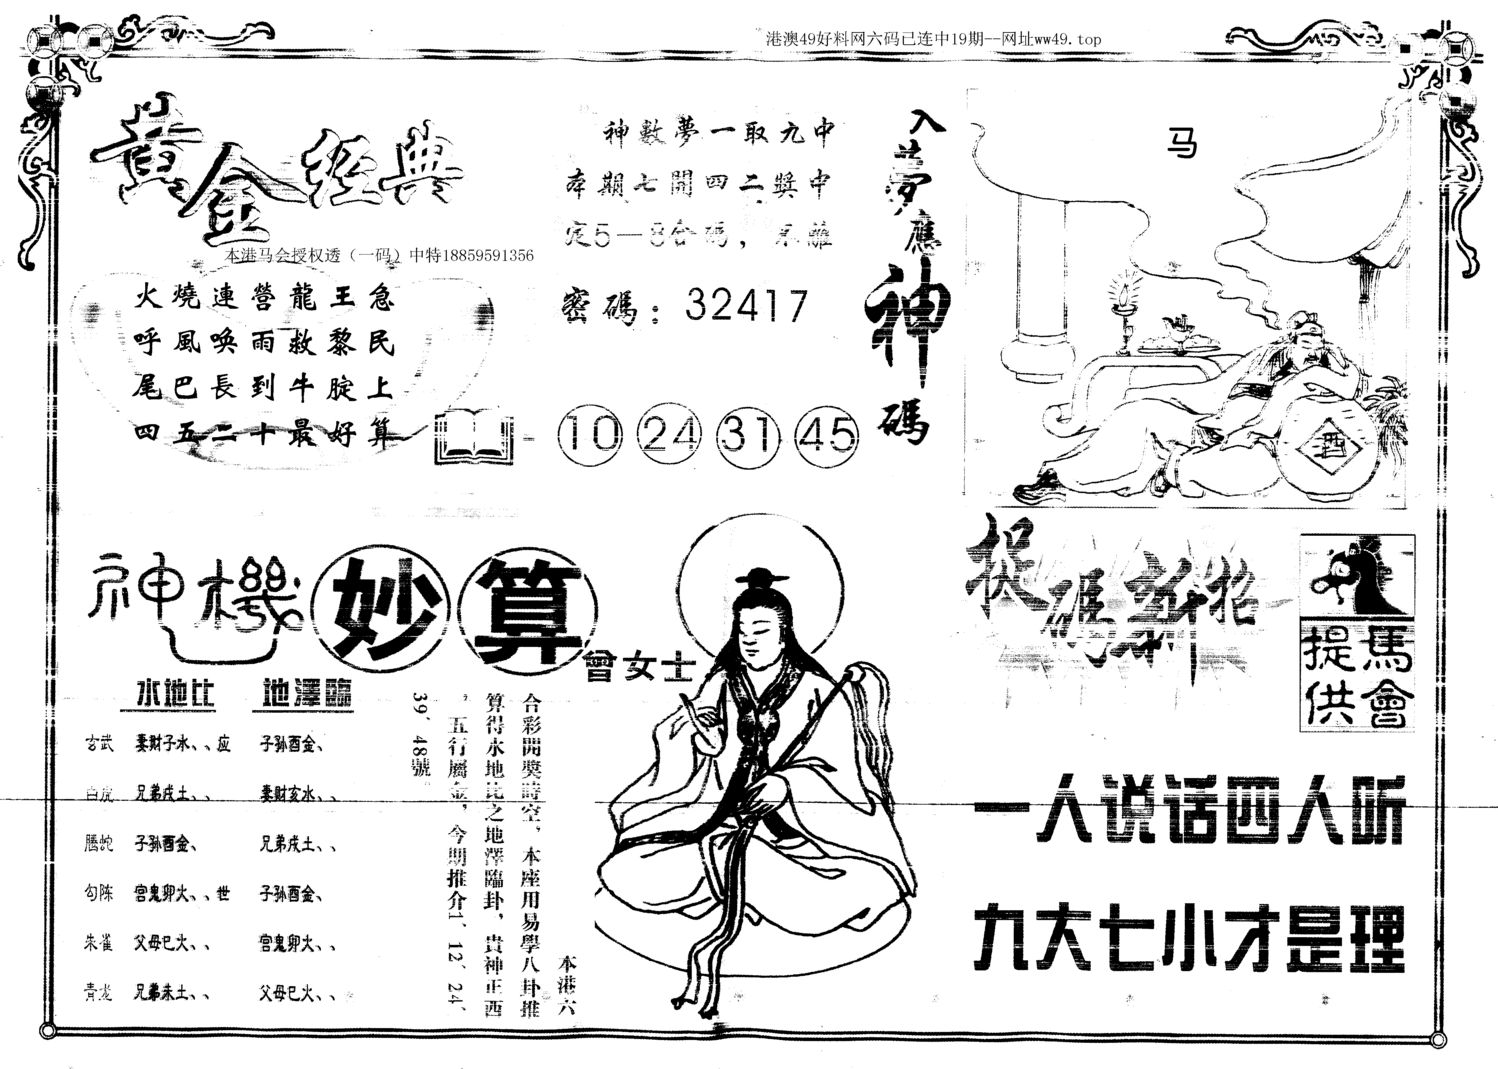 港澳49好料网六码已连中19期--网址ww49.top
黄金經典
本港马会授权透（一码）中特18859591356
火燒連營龍王急
呼風喚雨救黎民
尾巴長到牛腚上
四五二十最好算
神數夢一取九中
本期七開四二獎中
定5—8合碼，不離
密碼：32417
10 24 31 45
入夢應神碼
马
酒
神機妙算
曾女士
水地比 地澤臨
玄武 妻財子水、、应 子孙酉金、
白虎 兄弟戌土、、 妻財亥水、、
螣蛇 子孙酉金、 兄弟戌土、、
勾陈 官鬼卯火、、世 子孙酉金、
朱雀 父母巳火、、 官鬼卯火、、
青龙 兄弟未土、、 父母巳火、、
本港六
合彩開獎時空，本座用易學八卦推
算得水地比之地澤臨卦，貴神正西
，五行屬金，今期推介1、12、24、
39、48號
捉碼新招
馬會提供
一人说话四人听
九大七小才是理